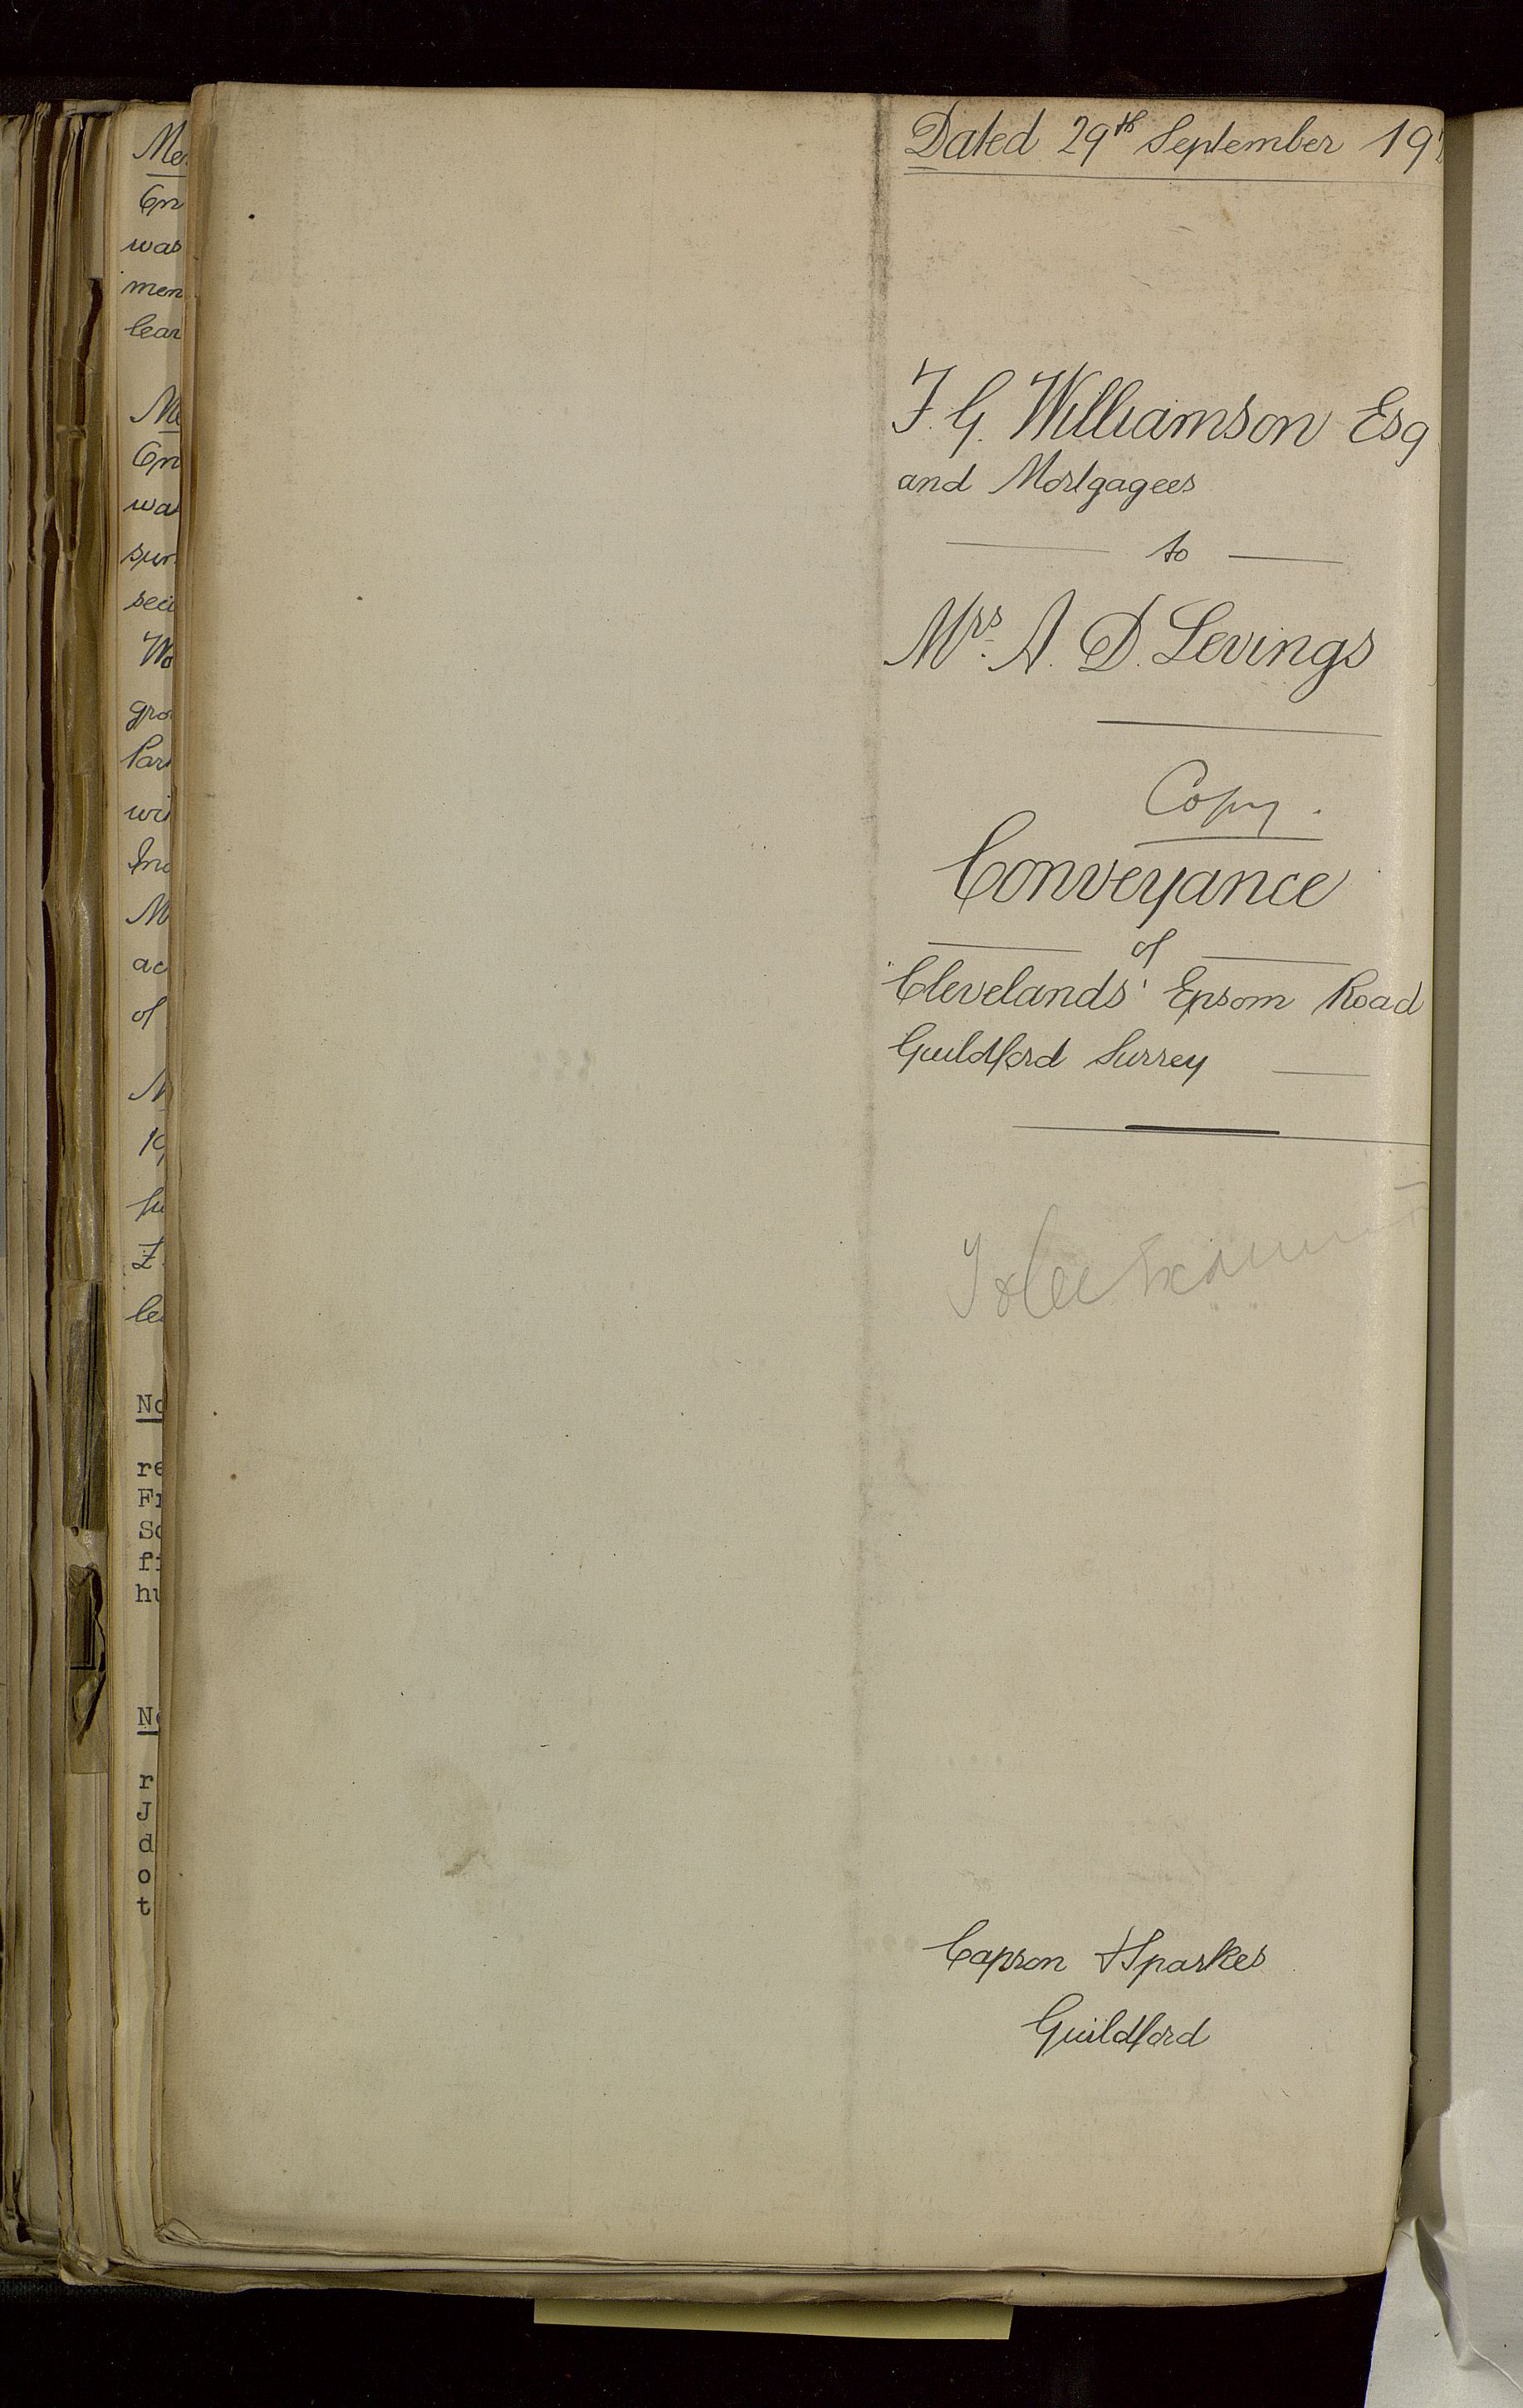 Dated 29th September 19
F. G. Williamson Esq
and Mortgagees
to
Mrs. A. D. Levings
Copy.
Conveyance
of
"Clevelands' Epsom Road
Guildford Surrey
Capron & Sparkes
Guildford
Me
On
was
men
lear
Me
On
wa
spr
sec
Wo
gro
Par
wi
Ind
M
ac
of
M
19
£
le
No
re
Fr
So
fi
hu
No
r
J
d
o
t